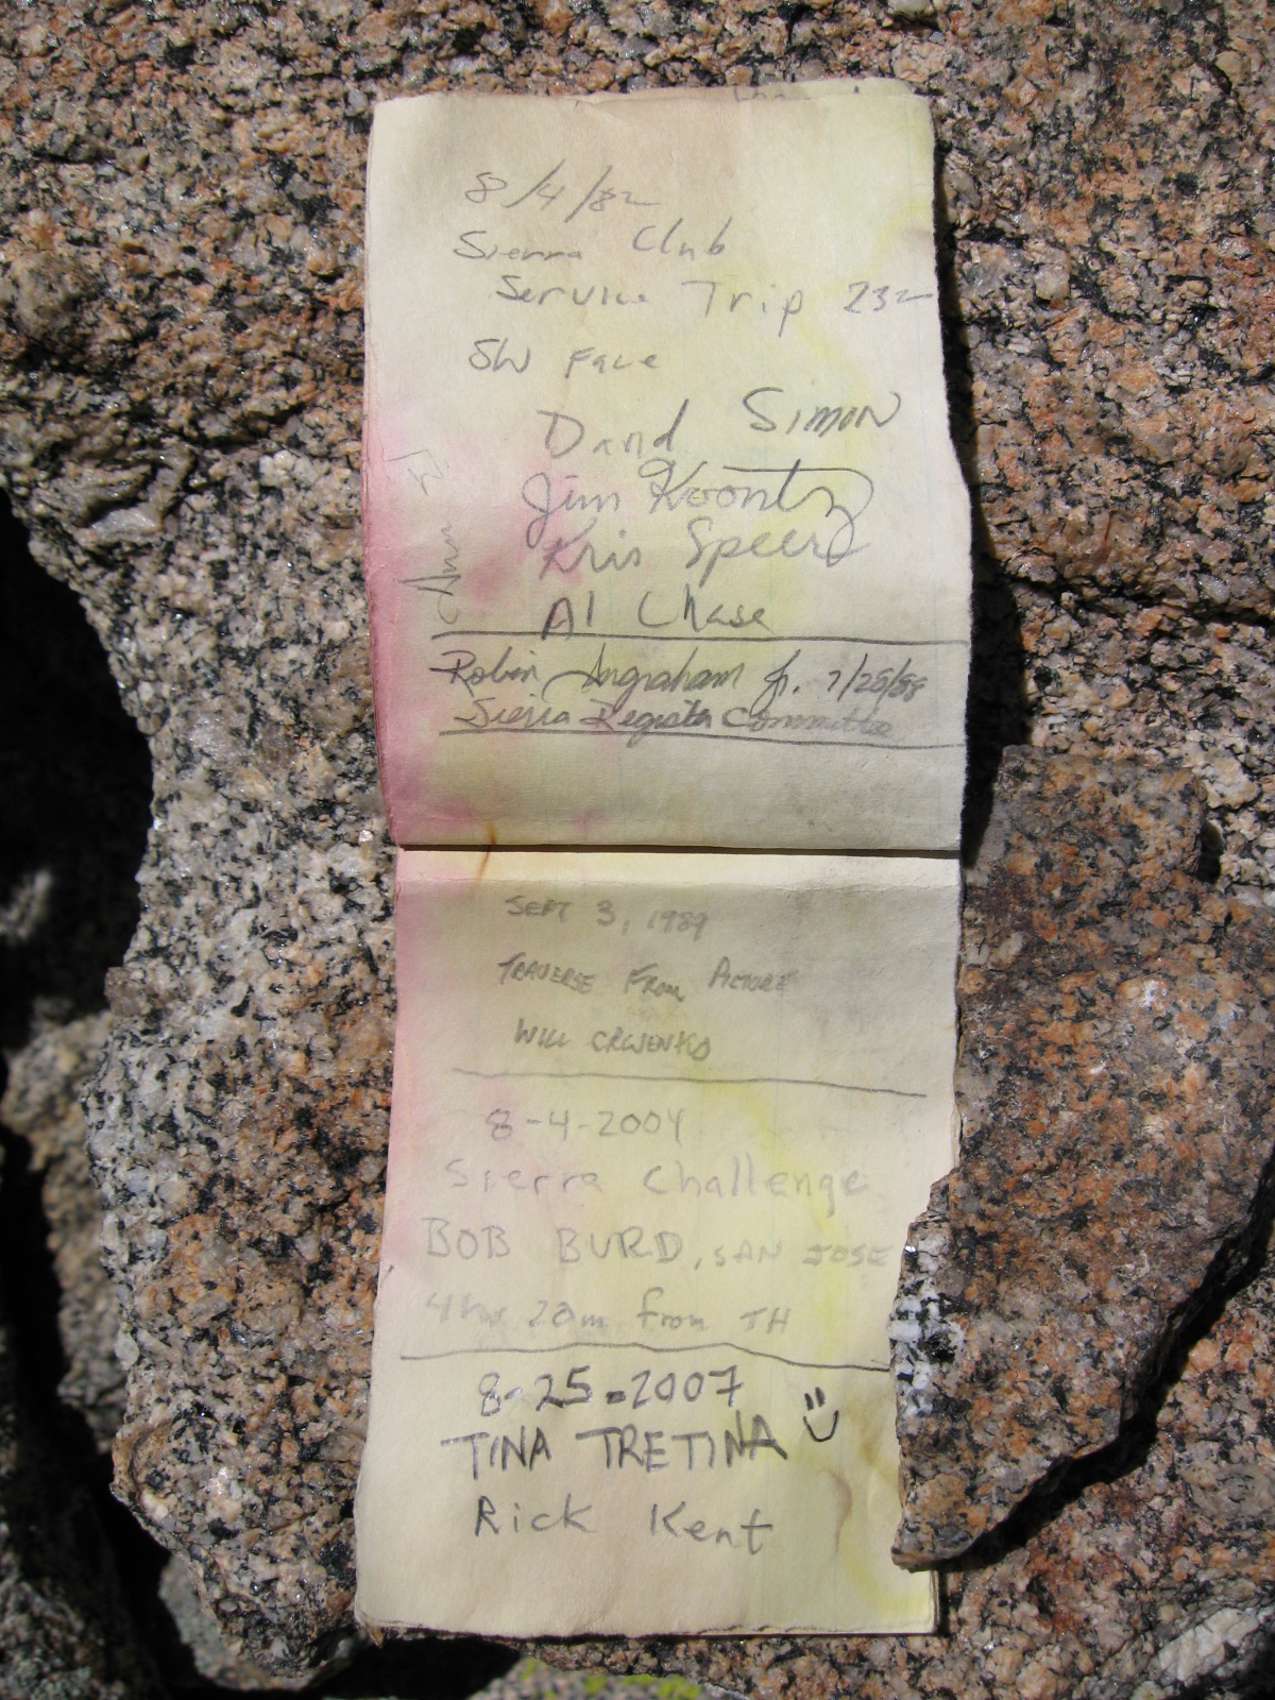 8/4/82
Sierra Club
Service Trip 232
SW Face
David Simon
Jim Koontz
Kris Speer
Al Chase
Robin Ingraham Jr. 7/25/88
Sierra Register Committee
SEPT 3, 1989
TRAVERSE FROM
WILL
8-4-2004
Sierra Challenge
BOB BURD, SAN JOSE
4hr 20m from TH
8-25-2007
TINA TRETINA
Rick Kent